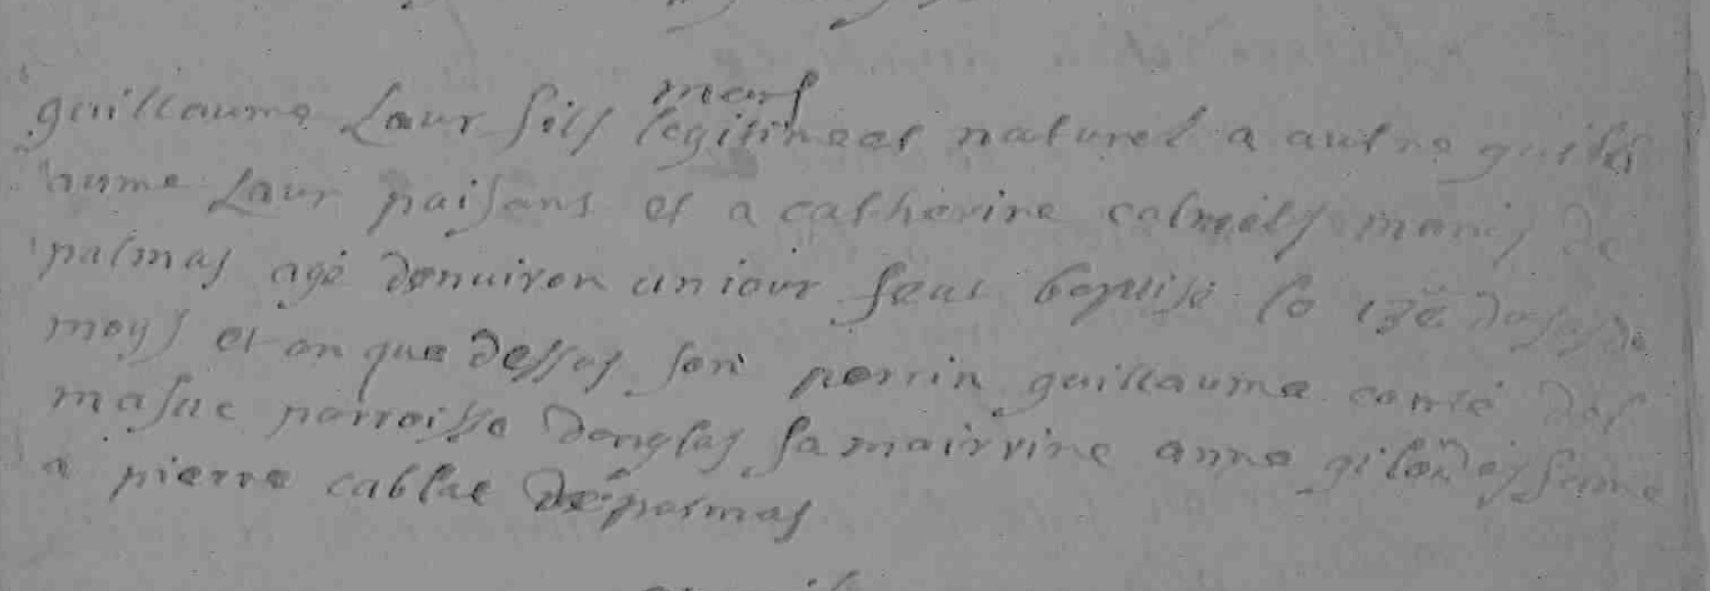 mars
guillaume Laur fils legitimeet naturel a autre guill
aume Laur paisans et a catherine calmels mariés de
palmas agé denuiron un iour feut baptisé le 13e
moys et an que dessus son perrin guillaume del
masuc parroisse donglas sa mairrine anne feme
a pierre cablac de palmas